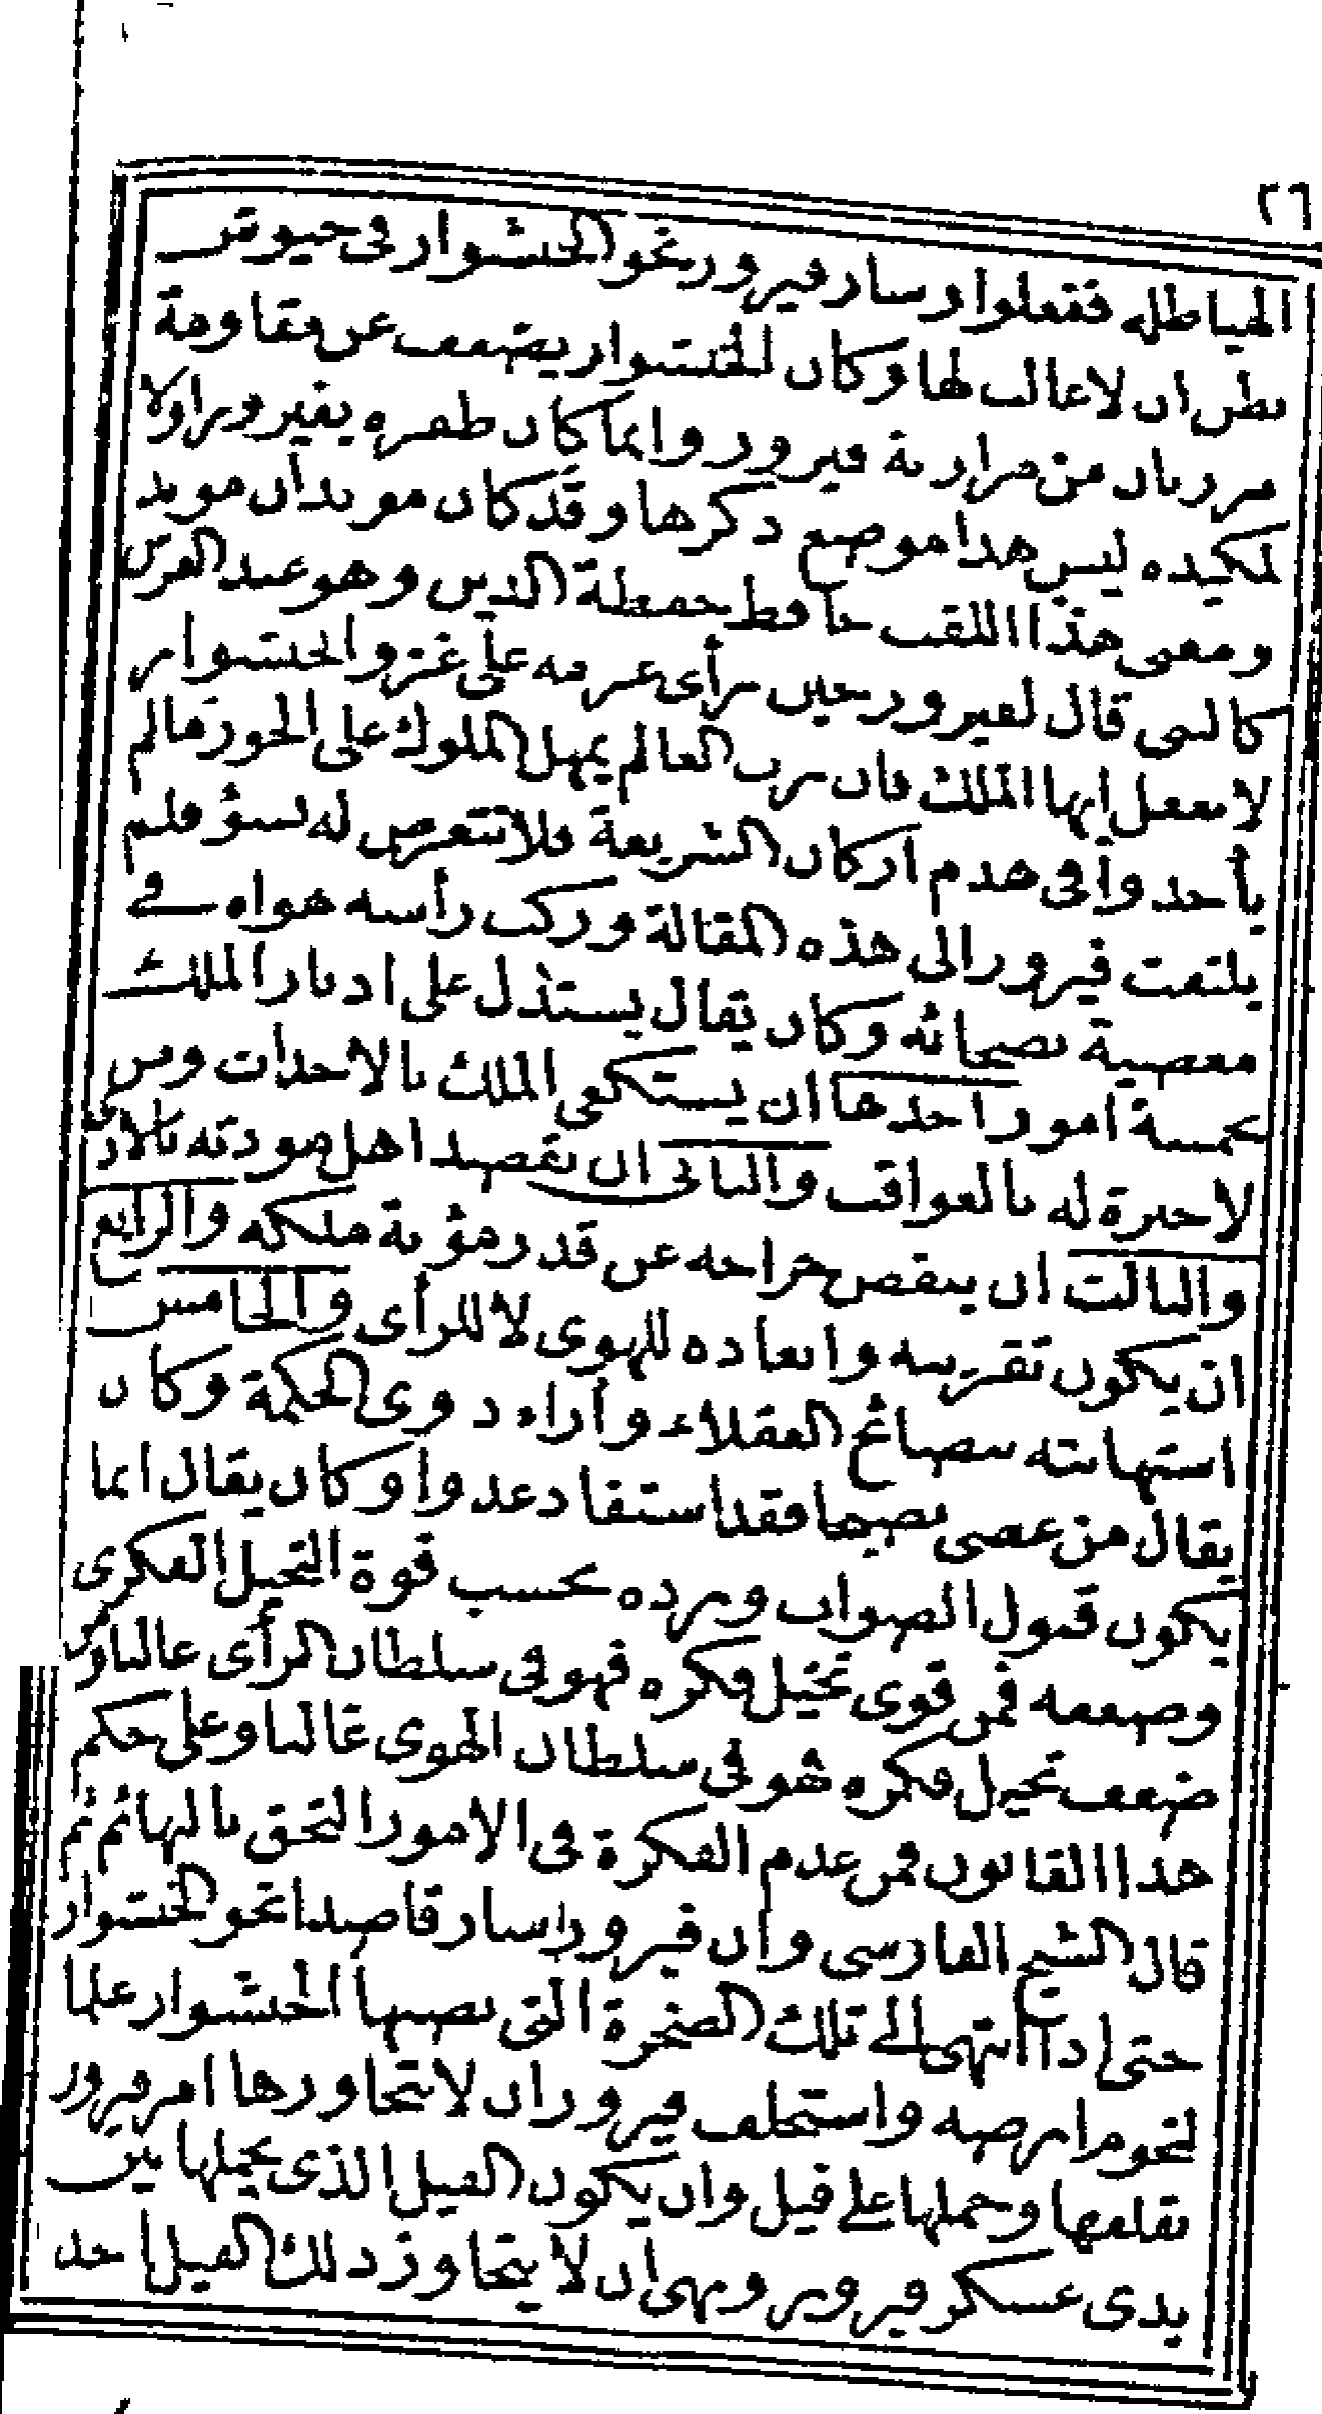 ٢٦
الهياطله ففعلوا وسار فيروز نحو الخشنوار في جيوش
يظن ان لا غالب لها وكان الخشنوار يضعف عن مقاومة
مرزبان من مرازبة فيروز وانما كان ظفره بفيروز اولا
لمكيده ليس هذا موضع ذكرها وقد كان موبذان موبذ
ومعنى هذا اللقب حافظ حفظة الدين وهو عند الفرس
كالنبي قال لفيروز حين رأى عزمه على غزو الخشنوار
لا تفعل ايها الملك فان رب العالم يمهل الملوك على الجور ما لم
يأخذوا في هدم اركان الشريعة فلا تتعرض له بسوء فلم
يلتفت فيروز الى هذه المقالة وركب رأسه هواه في
معصية نصحائه وكان يقال يستدل على ادبار الملك
بخمسة امور احدها ان يستكفي الملك بالاحداث ومن
لا خبرة له بالعواقب والثاني ان يقصد اهل مودته بالاذى
والثالث ان ينقص خراجه عن قدر مؤنة ملكه والرابع
ان يكون تقريبه وابعاده للهوى لا للرأى والخامس
استهانته بنصائح العقلاء وأراء ذوى الحكمة وكان
يقال من عصى نصيحا فقد استفاد عدوا وكان يقال انما
يكون قبول الصواب ورده بحسب قوة التخيل الفكرى
وضعفه فمن قوى تخيل فكره فهو في سلطان الرأى غالبا ومن
ضعف تخيل فكره فهو في سلطان الهوى غالبا وعلى حكم
هذا القانون فمن عدم الفكرة في الامور التحق بالبهائم ثم
قال الشيخ الفارسى وان فيروز سار قاصدا نحو الخشنوار
حتى اذا انتهى الى تلك الصخرة التي نصبها الخشنوار علما
لتخوم ارضه واستحلف فيروز ان لا يتجاوزها امر فيروز
بقلعها وحملها على فيل وان يكون الفيل الذى يحملها بين
يدى عسكر فيروز ونهى ان لا يتجاوز ذلك الفيل احد